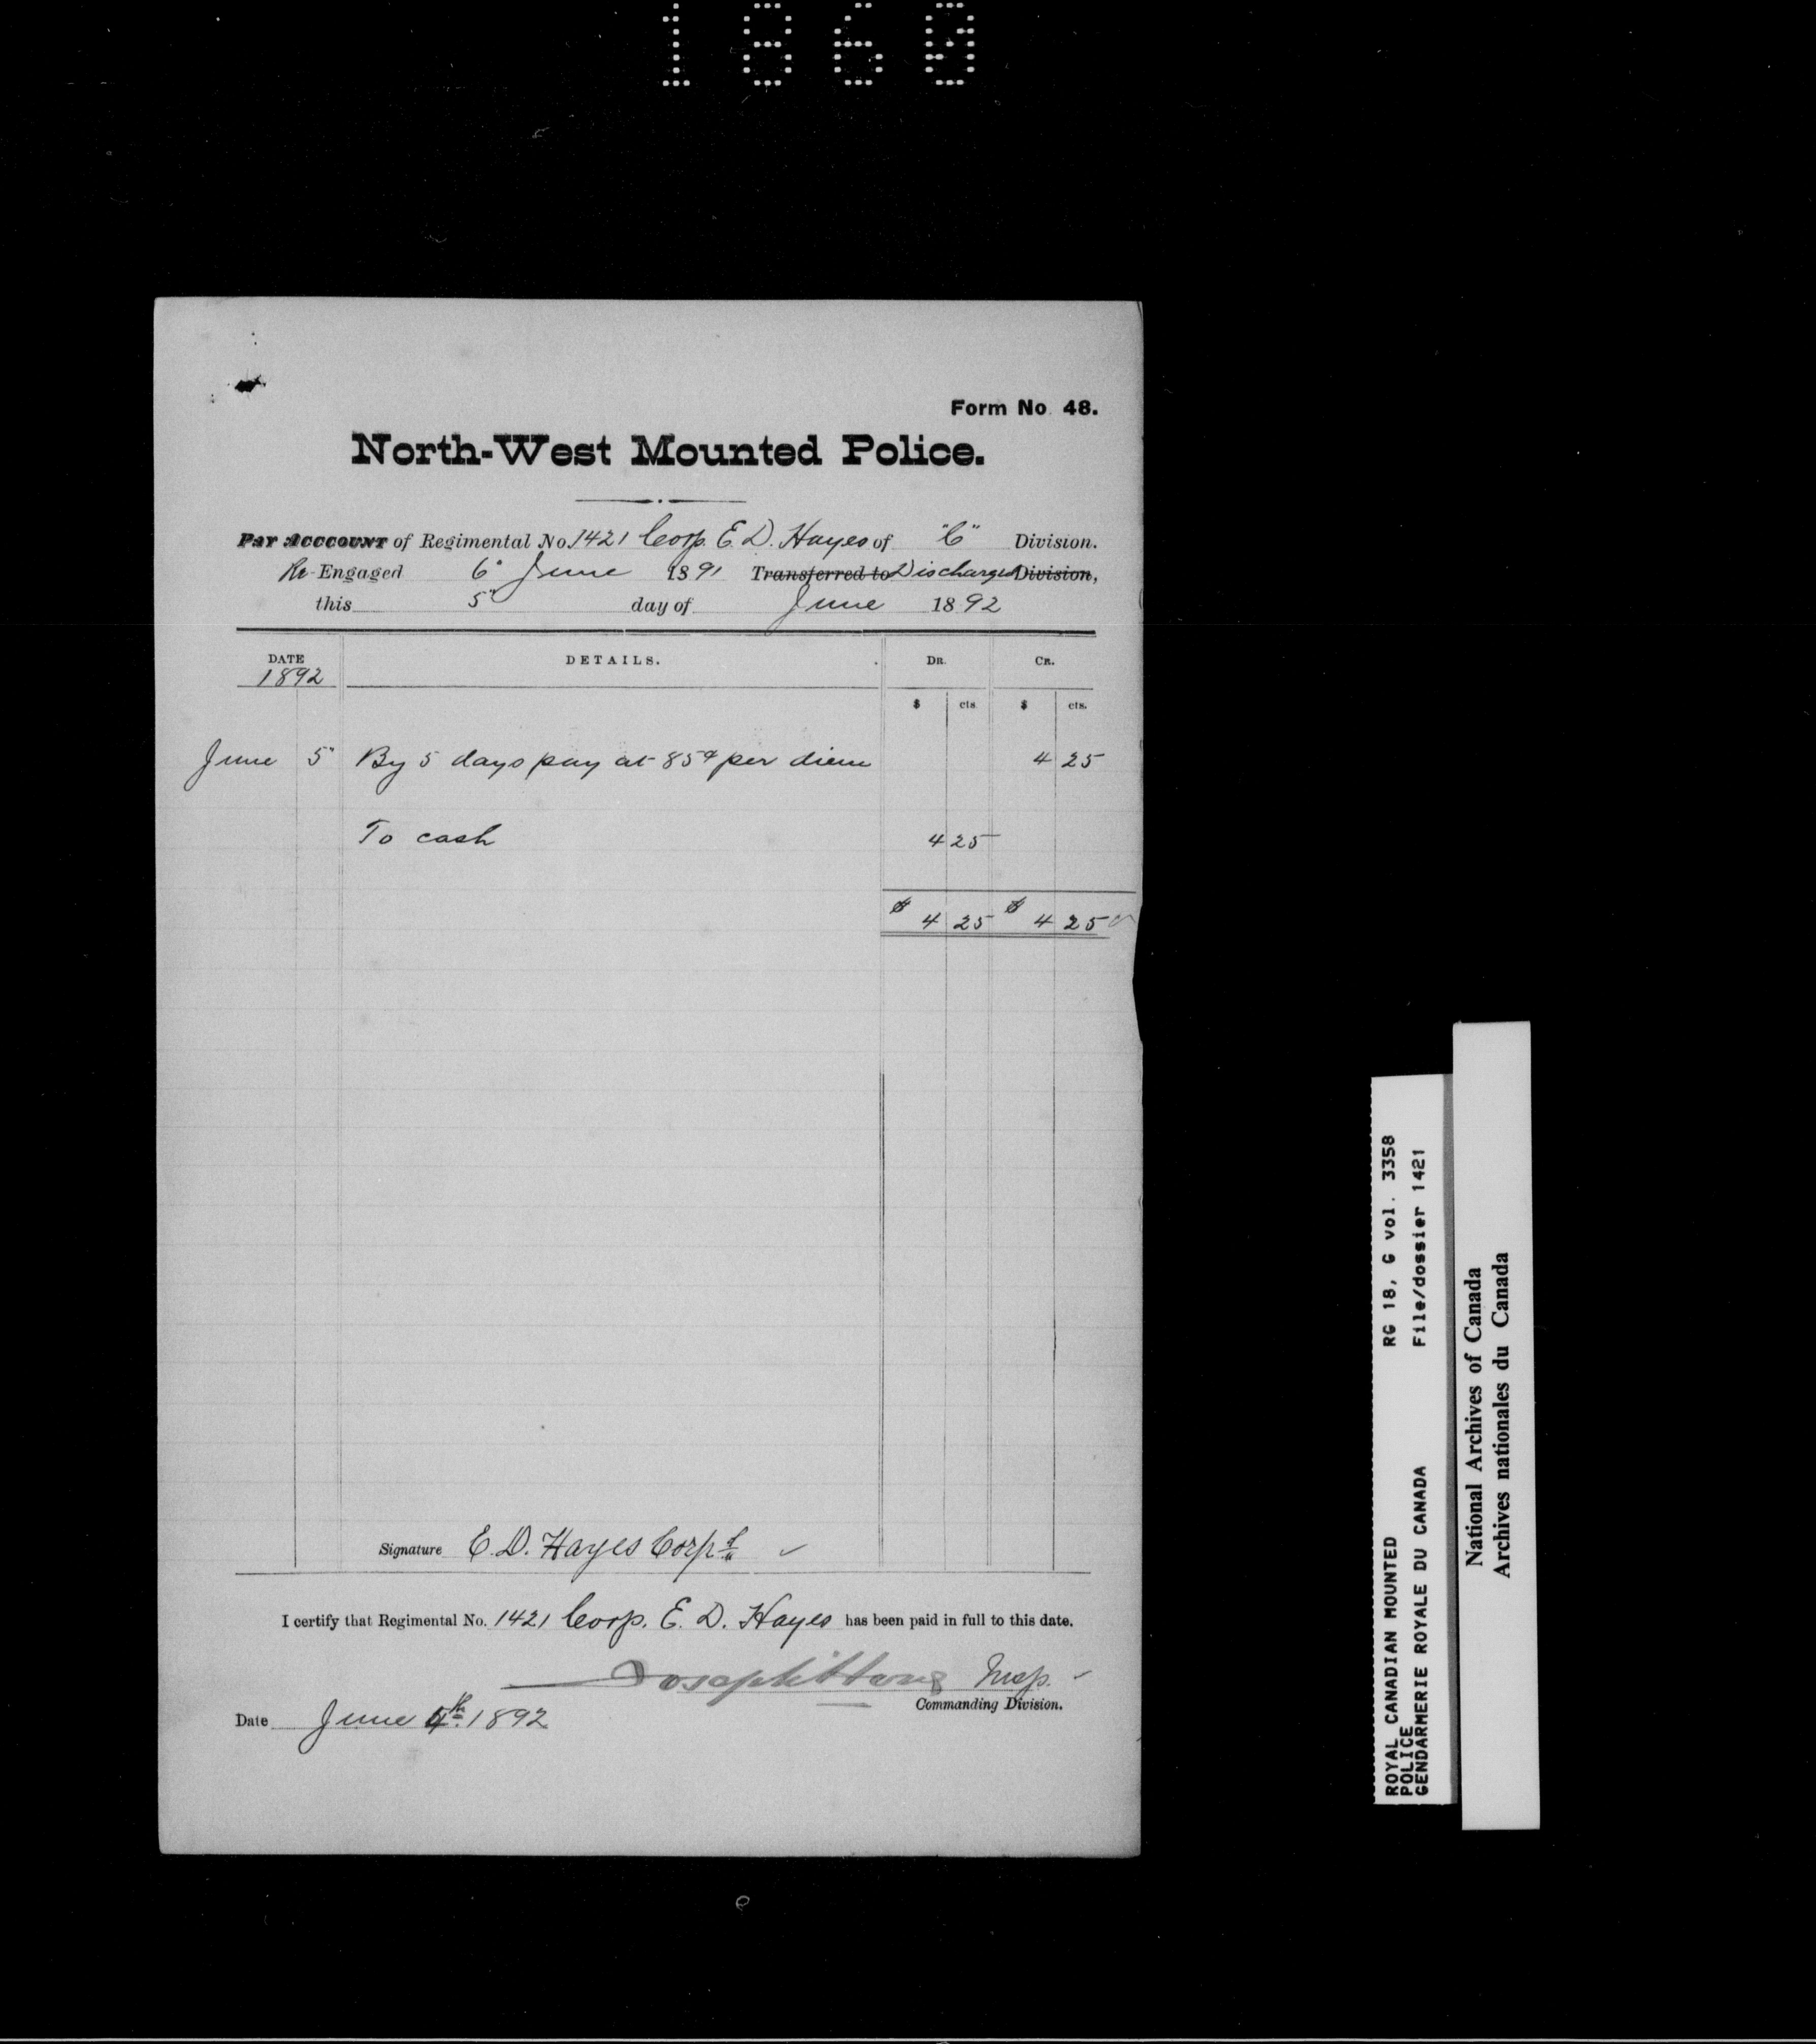 1860
Form No. 48.
North-West Mounted Police.
Pay Acccount of Regimental No. 1421 Corp. E. D. Hayes of "C" Division.
Re-Engaged 6" June 1891 Transferred to Discharged Division,
this 5" day of June 1892
DATE DETAILS. DR. CR.
1892
$ cts. $ cts.
June 5" By 5 days pay at 85¢ per diem 4 25
To cash 4 25
$ 4 25 $ 4 25
Signature E. D. Hayes Corpl
I certify that Regimental No. 1421 Corp. E. D. Hayes has been paid in full to this date.
Insp.
Commanding Division.
Date June 1892
ROYAL CANADIAN MOUNTED RG 18, G vol. 3358
POLICE
GENDARMERIE ROYALE DU CANADA File/dossier 1421
National Archives of Canada
Archives nationales du Canada